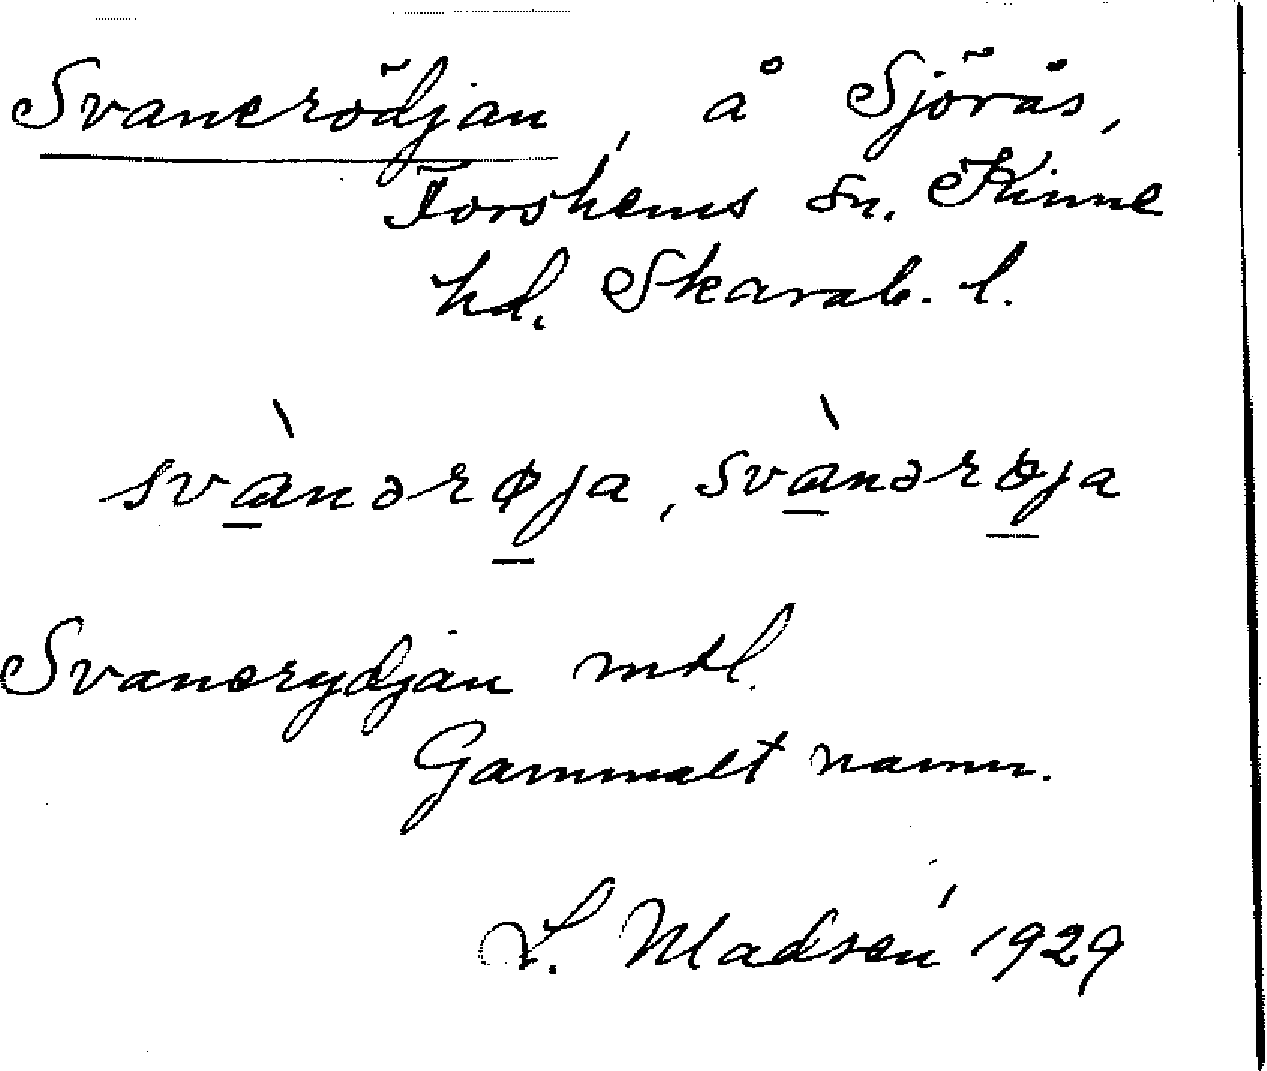 Svanerödjan, å Sjörås,
Forshems sn. Kinne
hd. Skarab. l.
svànərøja, svànəröja
Svanerydjan mtl.
Gammalt namn.
L. Madsén 1929